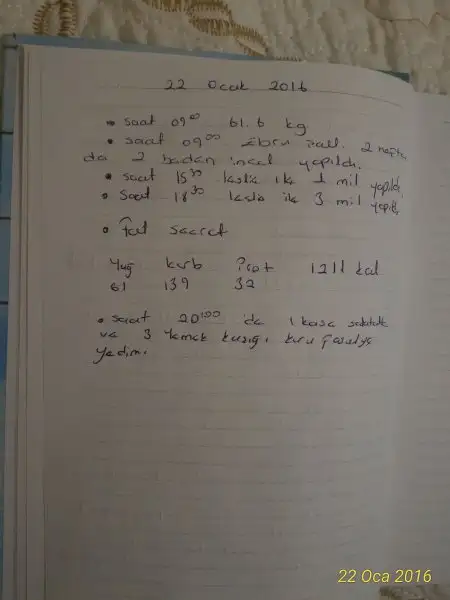 22 Ocak 2016
• saat 09⁰⁰ 61.6 kg
• saat 09⁰⁰ Ebru 2 hafta
da 2 beden ince yapıldı.
• saat 15³⁰ lastik ile 1 mil yapıldı
• Saat 18³⁰ lastik ile 3 mil yapıldı
• Fat secret
Yağ karb Prot 1211 kal
61 139 32
• saat 20:00 'de 1 kase salata
ve 3 Yemek kaşığı kuru fasulye
yedim.
22 Oca 2016